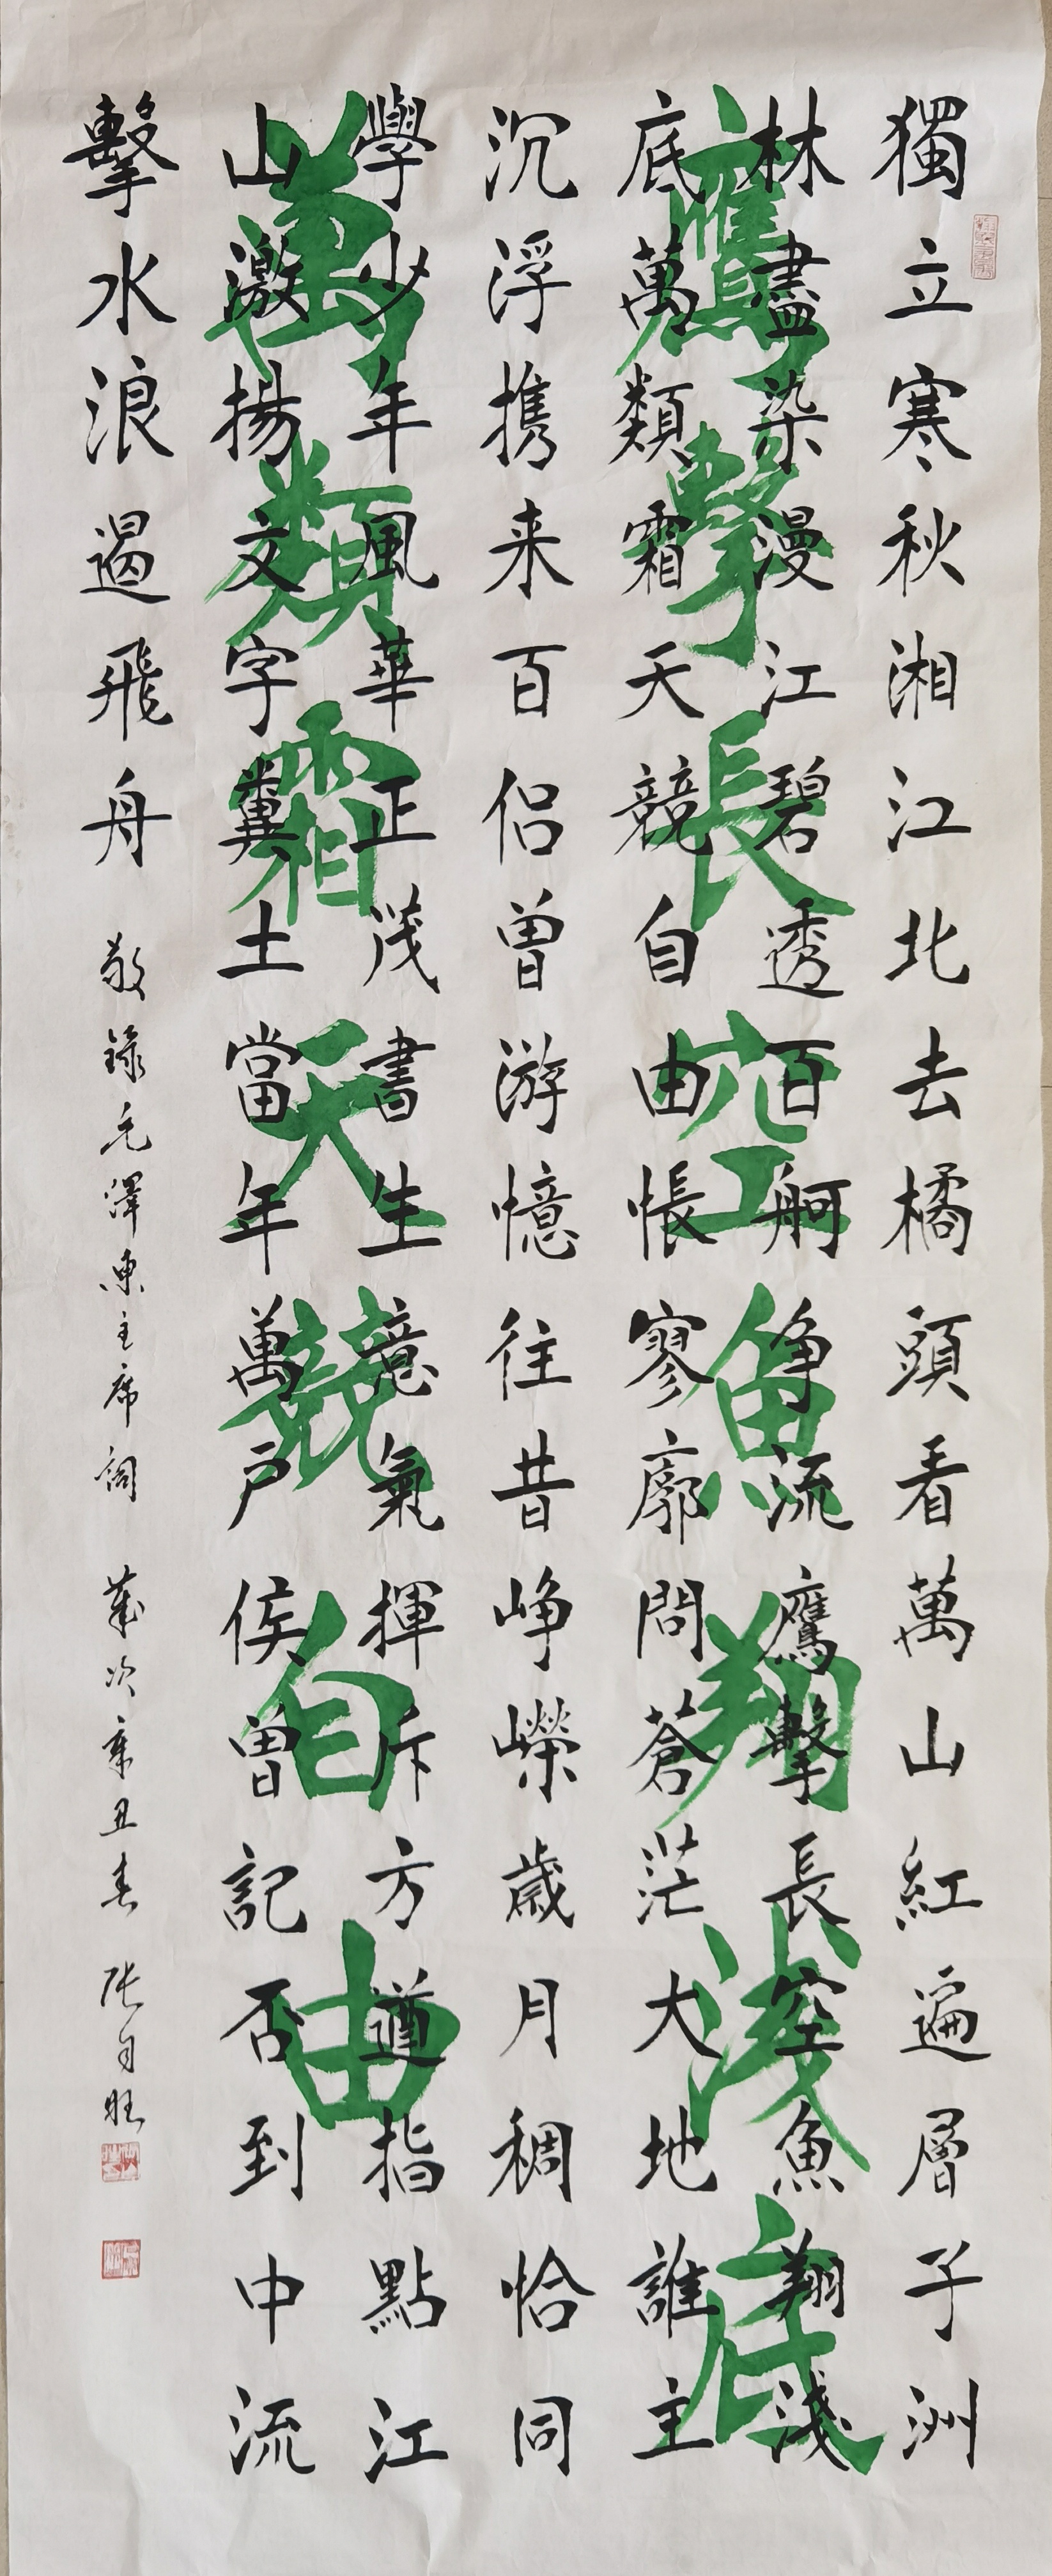 獨立寒秋湘江北去橘頭看萬山紅遍層子洲
林盡染漫江碧透百舸争流鷹擊長空魚翔淺
底萬類霜天競自由悵寥廓問蒼茫大地誰主
沉浮携来百侣曾游憶往昔峥嶸歲月稠恰同
學少年風華正茂書生意氣揮斥方遒指點江
山激揚文字糞土當年萬户侯曾記否到中流
擊水浪遏飛舟
敬錄毛澤東主席詞 歲次辛丑春 张旺
鷹擊長空魚翔淺底
萬類霜天競自由